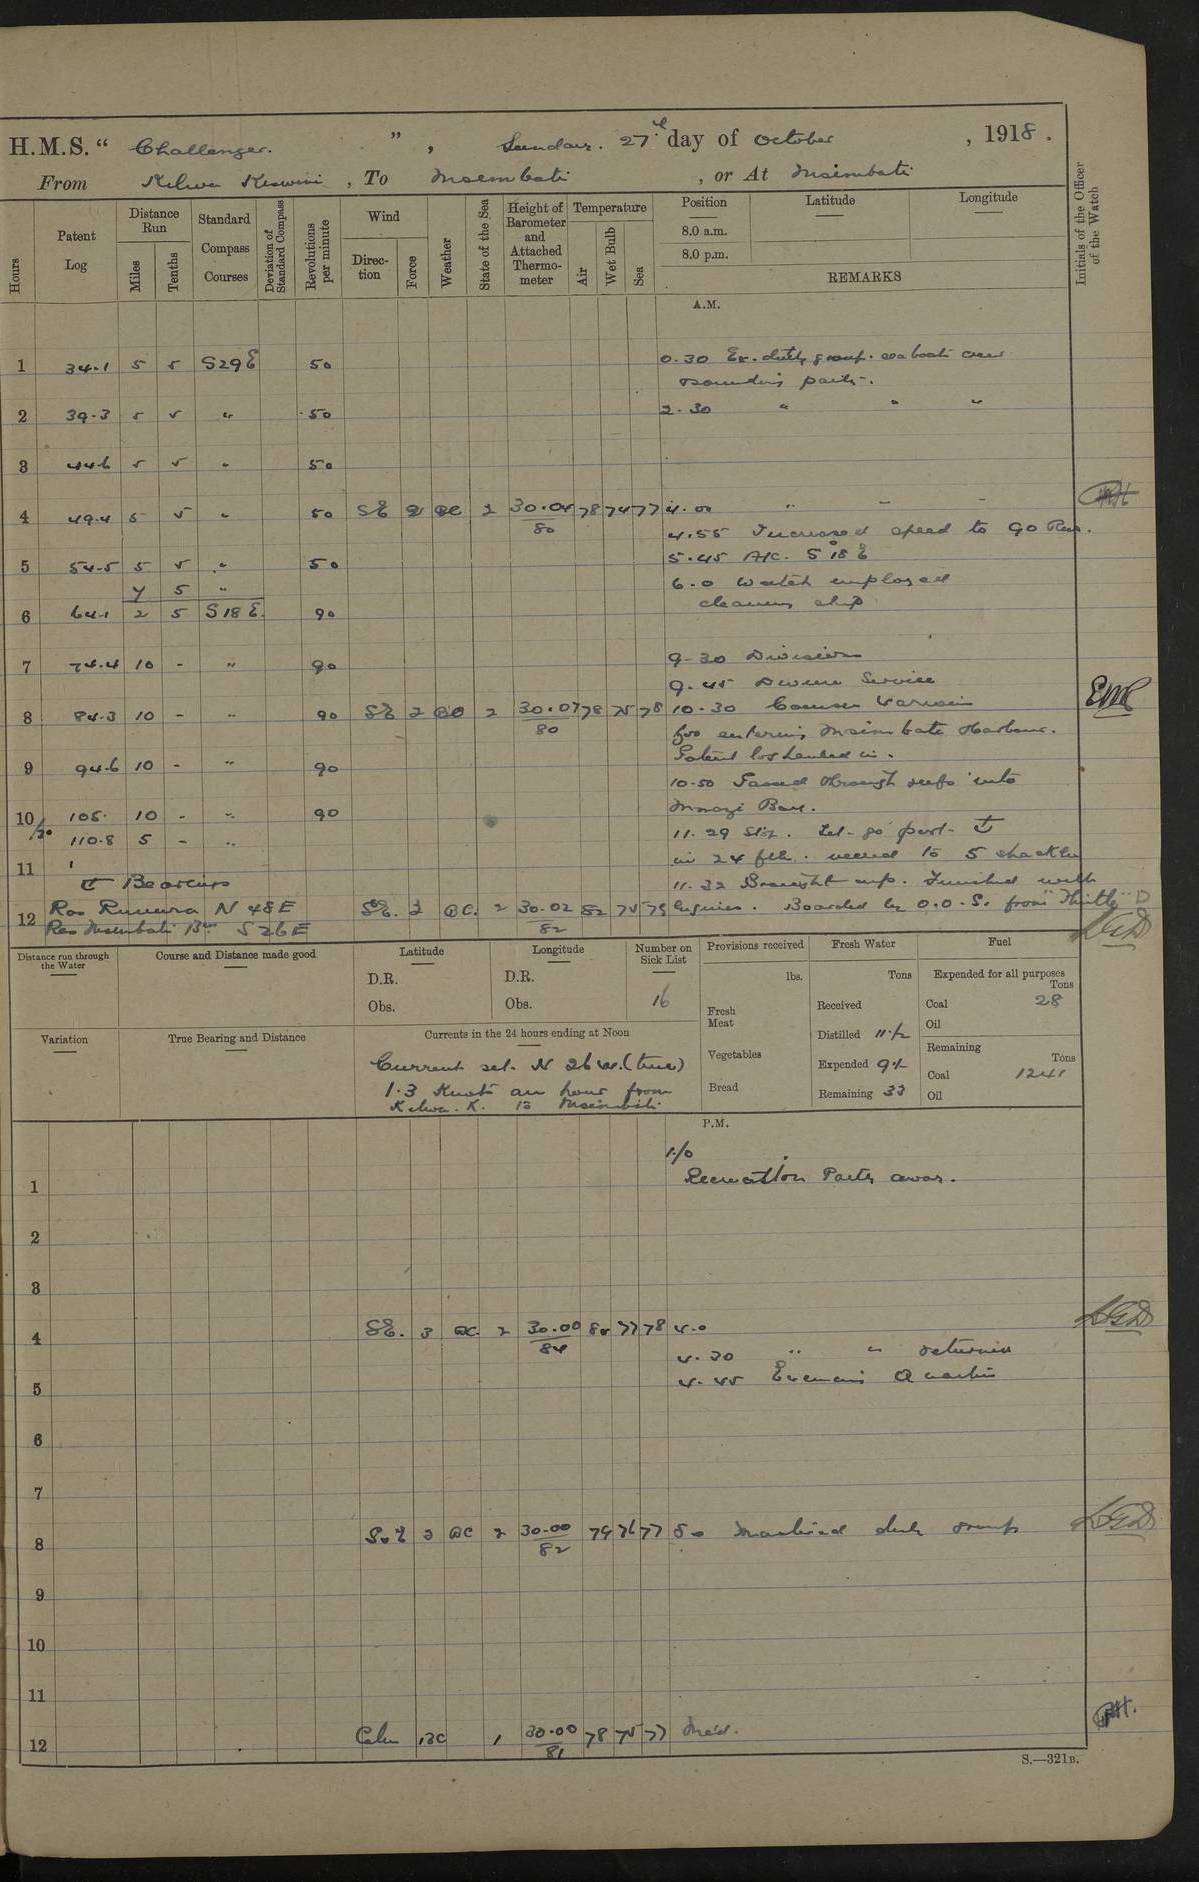 H.M.S. " Challenger. " , Sunday. 27th day of October , 1918.
From Kilwa Kiswini , To Msimbati , or At Msimbati
Hours
Patent Log
Distance Run
Miles
Tenths
Standard Compass Courses
Deviation of Standard Compass
Revolutions per minute
Wind
Direction
Force
Weather
State of the Sea
Height of Barometer and Attached Thermometer
Temperature
Air
Wet Bulb
Sea
Position
8.0 a.m.
8.0 p.m.
Latitude
Longitude
REMARKS
Initials of the Officer of the Watch
A.M.
1 34.1 5 5 S29E 50 0.30 Ex. duty group. sea boats crew
sounding party.
2 39.3 5 5 " 50 2.30 " " "
3 44.6 5 5 " 50
4 49.4 5 5 " 50 SE 2 BC 2 30.04/80 78 74 77 4.00 " " "
4.55 Increased speed to 90 Rev.
5 54.5 5 5 " 50 5.45 A/C. S 18° E
7 5 " 6.0 Watch employed
6 64.1 2 5 S18E. 90 cleaning ship
7 74.4 10 - " 90 9-30 Divisions
9.45 Divine Service
8 84.3 10 - " 90 SE 2 BC 2 30.07/80 78 75 78 10.30 Courses various
for entering Msimbati Harbour.
Patent log handed in.
9 94.6 10 - " 90
10.50 Passed through reefs into
10 105. 10 - " 90 Mnazi Bay.
/30 110.8 5 - " 11.29 Stop. Let go port ⚓
11 in 24 fth. veered to 5 shackles
⚓ Bearings 11.32 Brought up. Finished with
12 Ras Ruvura N 48 E SE. 3 BC. 2 30.02/82 82 75 79 Engines. Boarded by O.O.S. from "Thistle"
Ras Msimbati Bn S 26 E
Distance run through the Water
Course and Distance made good
Latitude
D.R.
Obs.
Longitude
D.R.
Obs.
Number on Sick List
16
Provisions received
lbs.
Fresh Meat
Vegetables
Bread
Fresh Water
Tons
Received
Distilled 11½
Expended 9½
Remaining 33
Fuel
Expended for all purposes
Tons
Coal 28
Oil
Remaining
Tons
Coal 1241
Oil
Variation
True Bearing and Distance
Currents in the 24 hours ending at Noon
Current set. N 26 W. (true)
1.3 Knots an hour from
Kilwa. K. to Msimbati
P.M.
1.10
1 Recreation Party away.
2
3
4 SE. 3 BC. 2 30.00/84 77 78 4.0
4.30 " " returned
5 4.45 Evening Quarters
6
7
8 3 BC 2 30.00/82 79 76 77 8.0 Mustered duty group
9
10
11
12 Calm BC 1 30.00/81 78 75 77 Mid.
S.—321B.